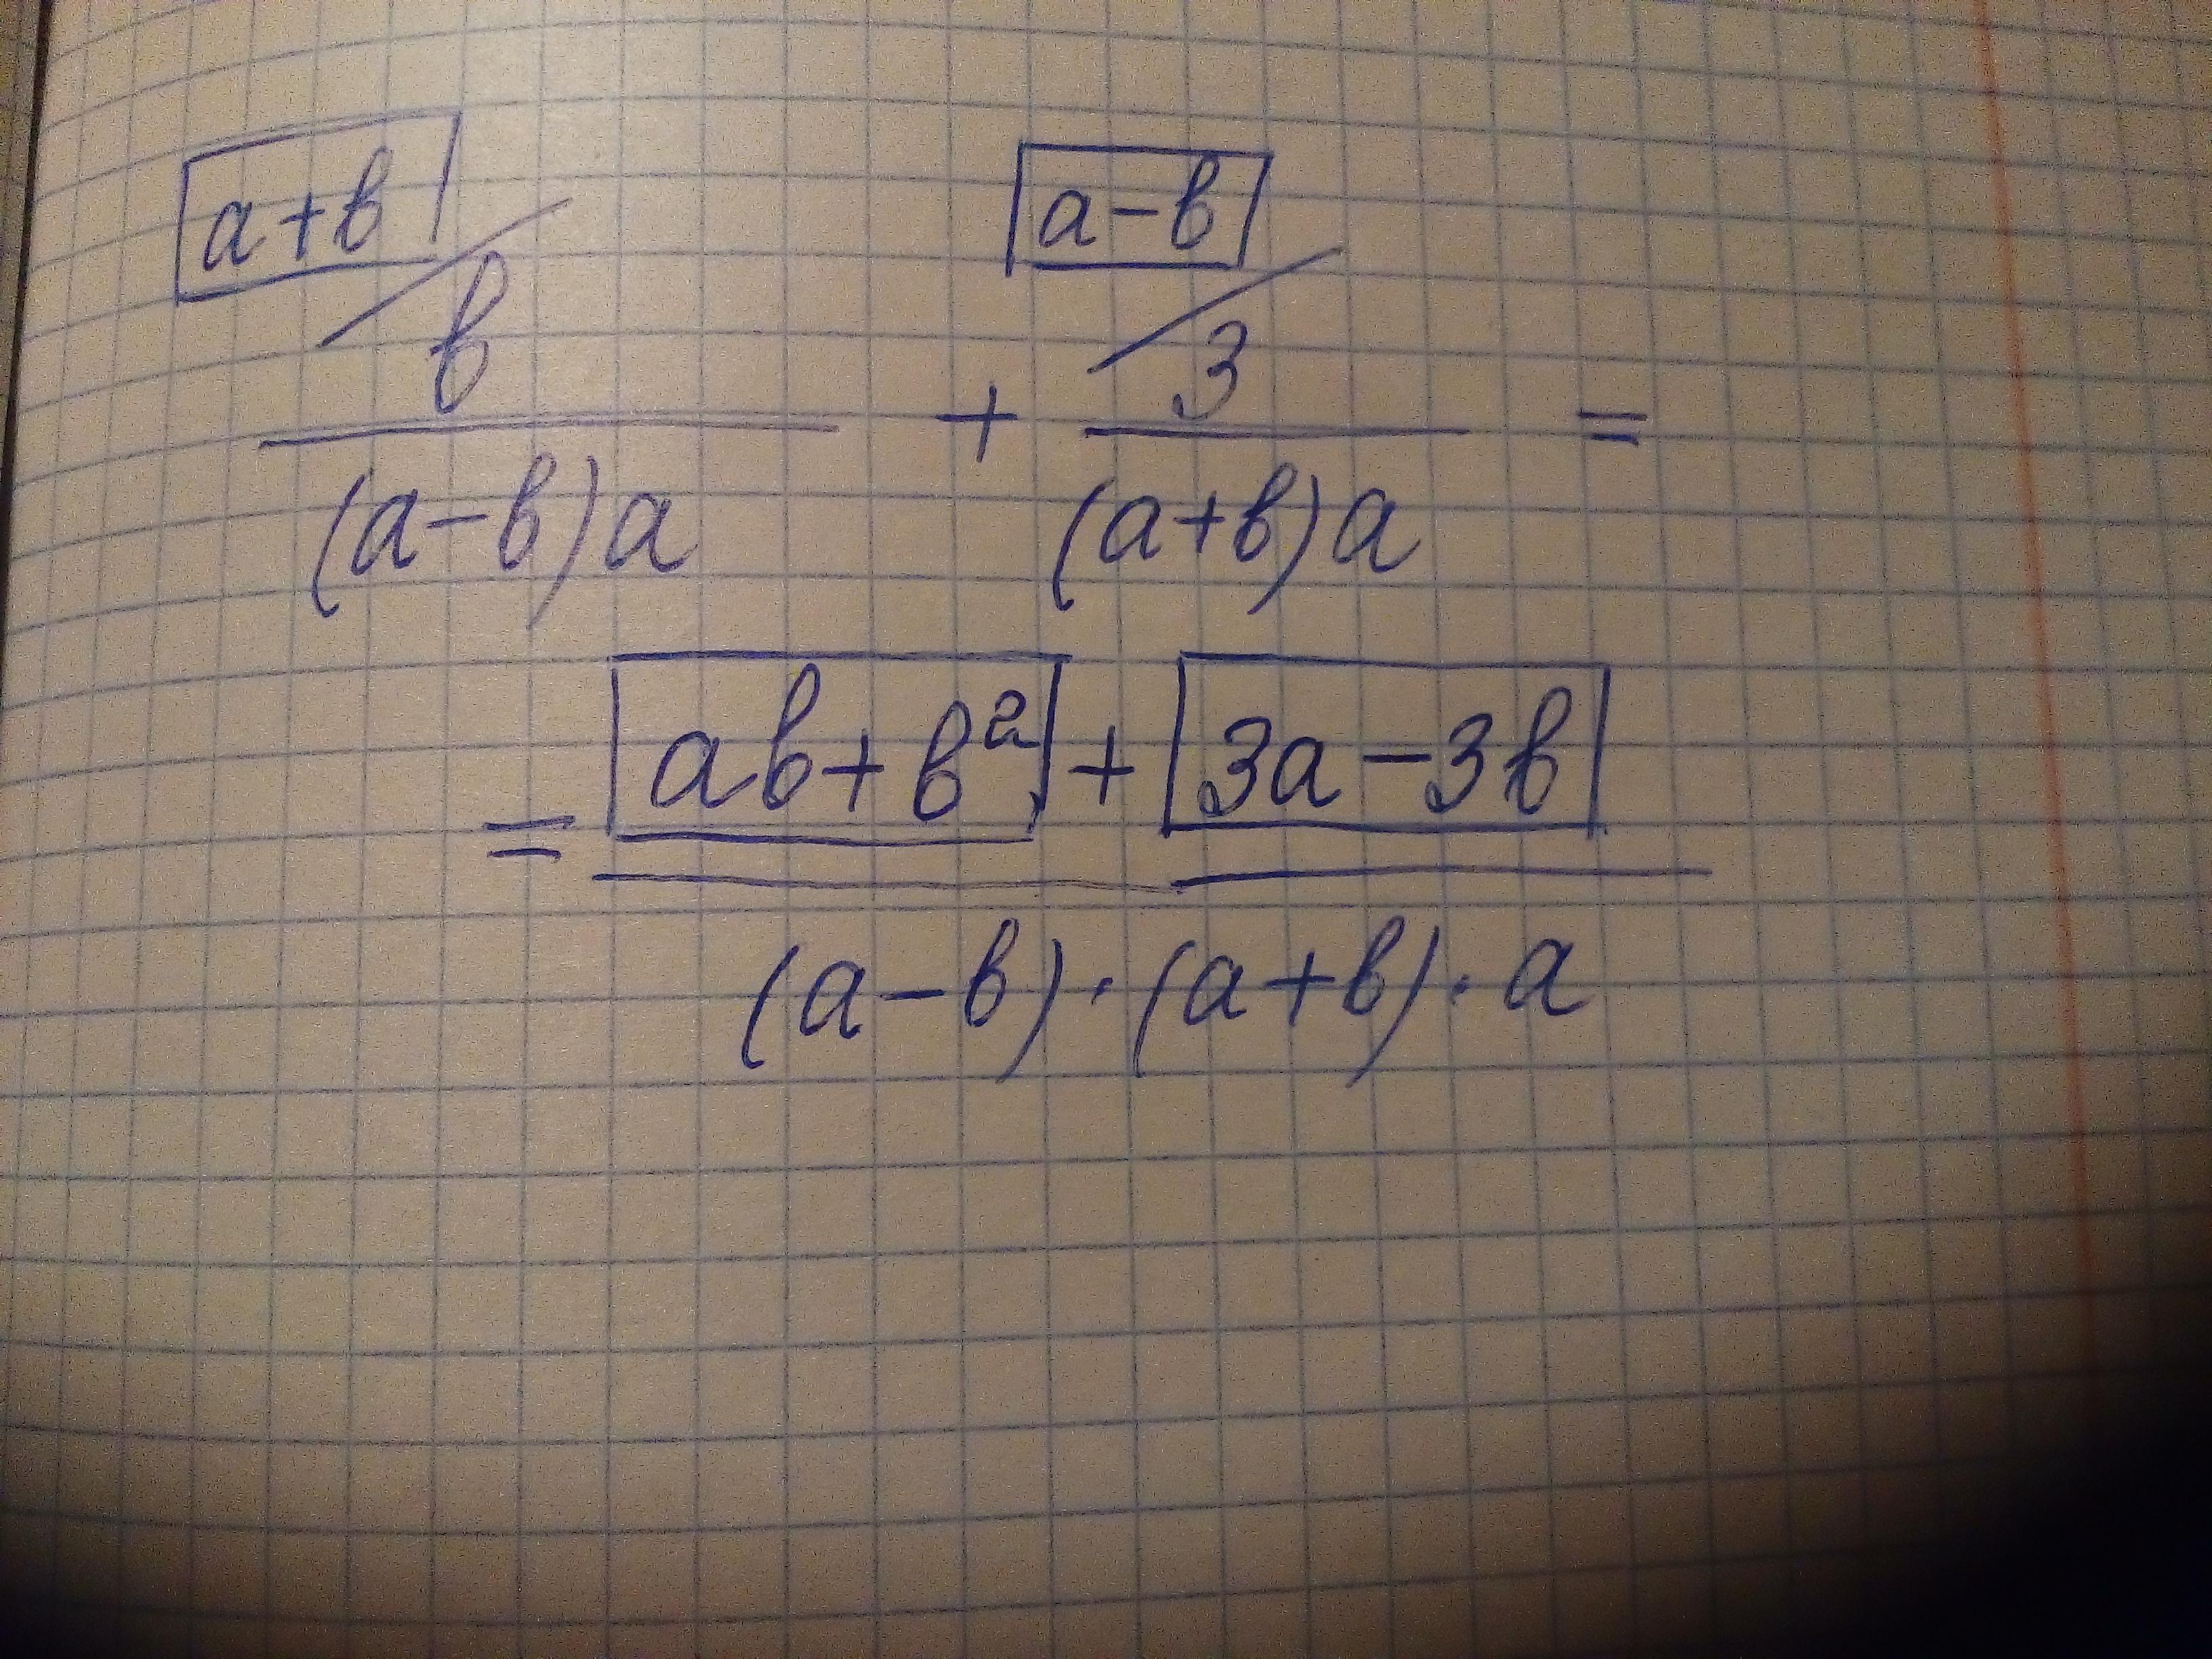 a+b a-b
b 3
+ =
(a-b)a (a+b)a
= ab+b² + 3a-3b
(a-b)·(a+b)·a